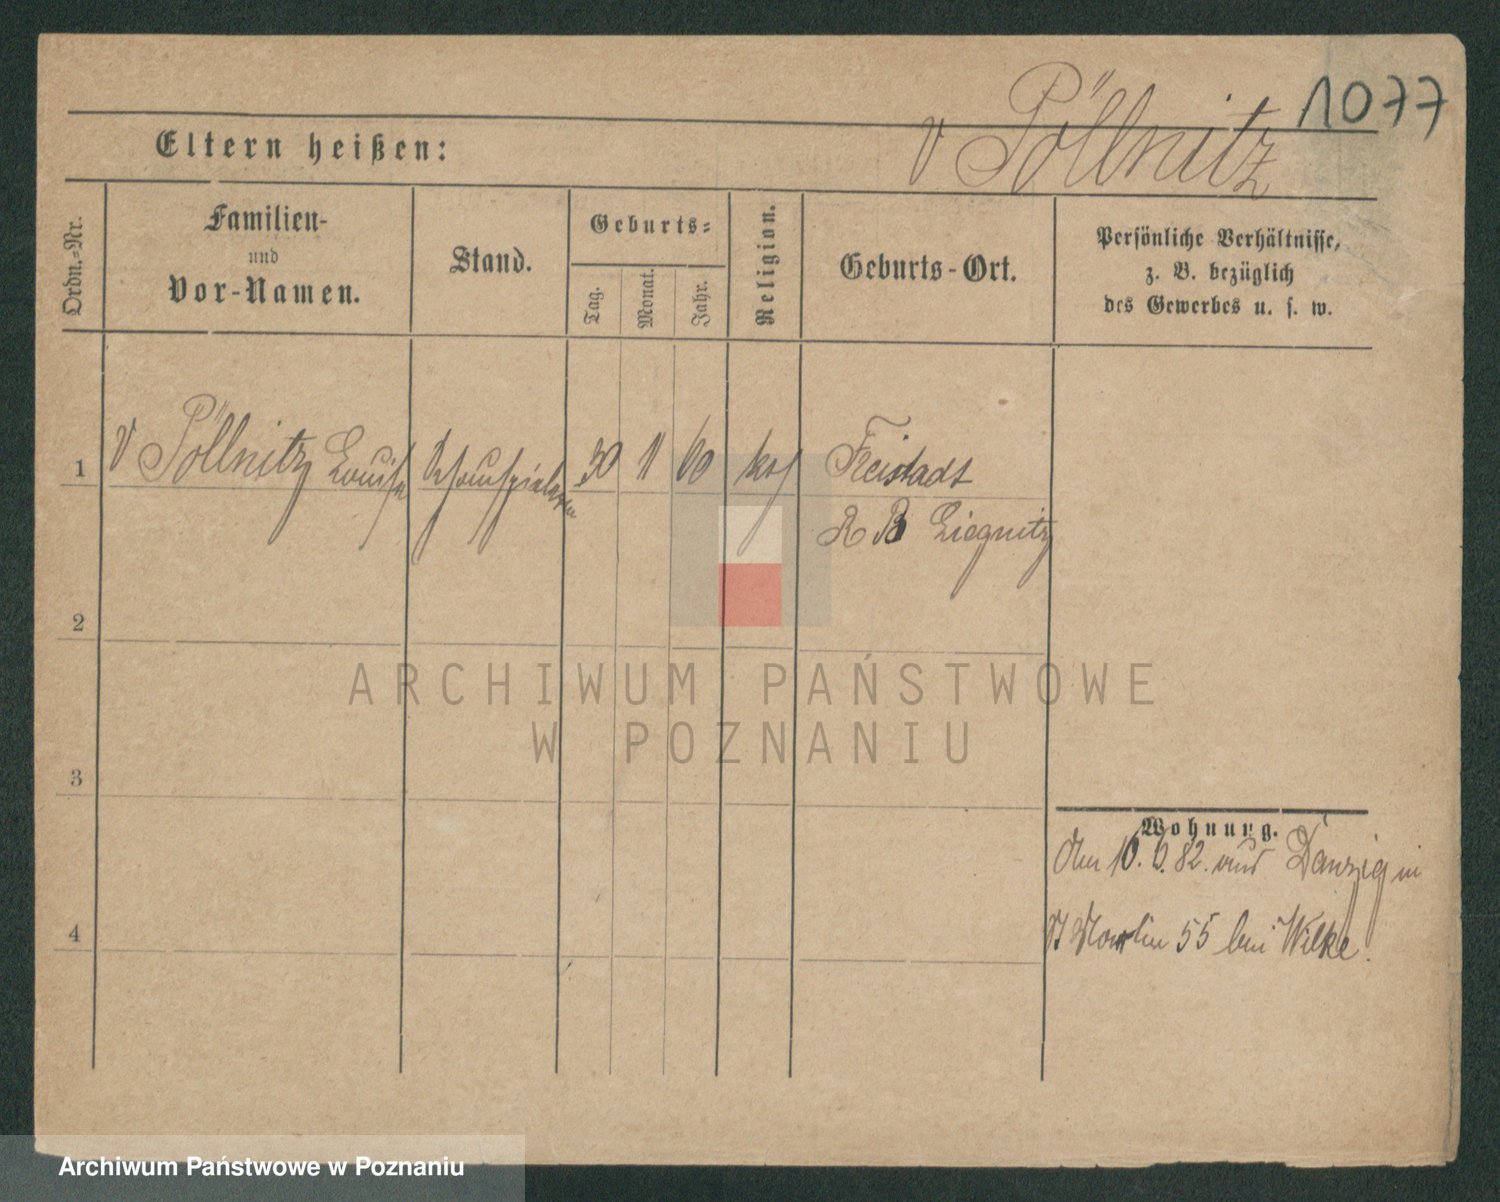 1077
v Pöllnitz
Eltern heißen:
Ordn.-Nr.
Familien-
und
Vor-Namen.
Stand.
Geburts-
Tag.
Monat.
Jahr.
Religion.
Geburts-Ort.
Persönliche Verhältnisse,
z. B. bezüglich
des Gewerbes u. s. w.
1
v Pöllnitz Louise
Schauspielerin
30
11
60
kat
Freistadt
R B Liegnitz
2
3
4
Wohnung.
den 10. 6. 82. aus Danzig in
St Martin 55 bei Wilke.
ARCHIWUM PAŃSTWOWE
W POZNANIU
Archiwum Państwowe w Poznaniu